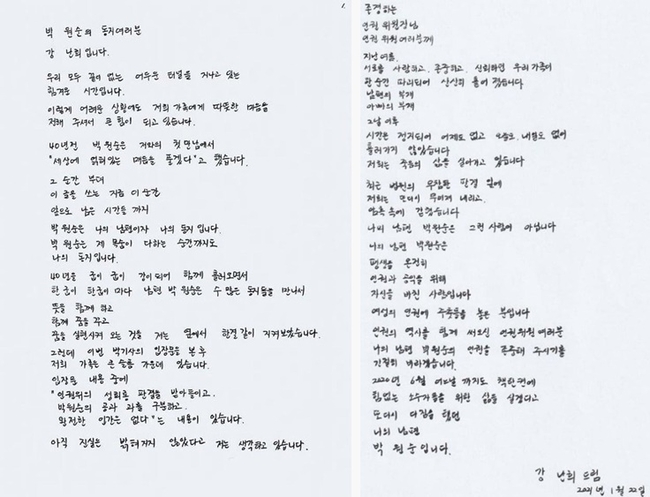 박 원순의 동지여러분
강 난희입니다.
우리 모두 끝이 없는 어두운 터널을 지나고 있는
힘겨운 시간입니다.
이렇게 어려운 상황에도 저희 가족에게 따뜻한 마음을
전해 주셔서 큰 힘이 되고 있습니다.
40년전 박원순은 저와의 첫 만남에서
"세상에 얽혀있는 매듭을 풀겠다"고 했습니다.
그 순간 부터
이 글을 쓰는 지금 이 순간
앞으로 남은 시간들 까지
박 원순은 나의 남편이자 나의 동지 입니다.
박 원순은 제 목숨이 다하는 순간까지도
나의 동지입니다.
40년을 굽이 굽이 강이되어 함께 흘러오면서
한 굽이 한굽이 마다 남편 박 원순은 수 많은 동지들을 만나서
뜻을 함께 하고
함께 꿈을 꾸고
꿈을 실현시켜 오는 것을 저는 옆에서 한결 같이 지켜보았습니다.
그런데 이번 박기사의 입장문을 본 후
저희 가족은 큰 슬픔 가운데 있습니다.
입장문 내용 중에
"인권위의 성희롱 판결을 받아들이고,
박원순의 공과 과를 구분하고,
완전한 인간은 없다"는 내용이 있습니다.
아직 진실은 밝혀지지 않았다고 저는 생각하고 있습니다.
존경하는
인권 위원장님
인권 위원 여러분께
지난여름.
서로를 사랑하고, 존중하고, 신뢰하던 우리 가족이
한 순간 파괴되어 산산히 흩어 졌습니다
남편의 부재
아빠의 부재
그날 이후
시간은 정지되어 어제도 없고 오늘도, 내일도 없이
흘러가지 않았습니다
저희는 죽음의 삶을 살아가고 있습니다
최근 법원의 판결 앞에
저희는 또다시 무너져 내리고,
암흑 속에 갇혔습니다
나의 남편 박원순은 그런 사람이 아닙니다
나의 남편 박원순은
평생을 온전히
인권과 공익을 위해
자신을 바친 사람입니다
여성의 인권에 주춧돌을 놓은 분입니다
인권의 역사를 함께 써오신 인권위원 여러분
나의 남편 박원순의 인권을 존중해 주시기를
간절히 바라겠습니다.
2020년 6월 어느날 까지도 책탄권에
힘없는 소수자들을 위한 삶을 살겠다고
또다시 다짐을 했던
나의 남편
박 원순 입니다.
강 난희 드림
2021년 1월 22일